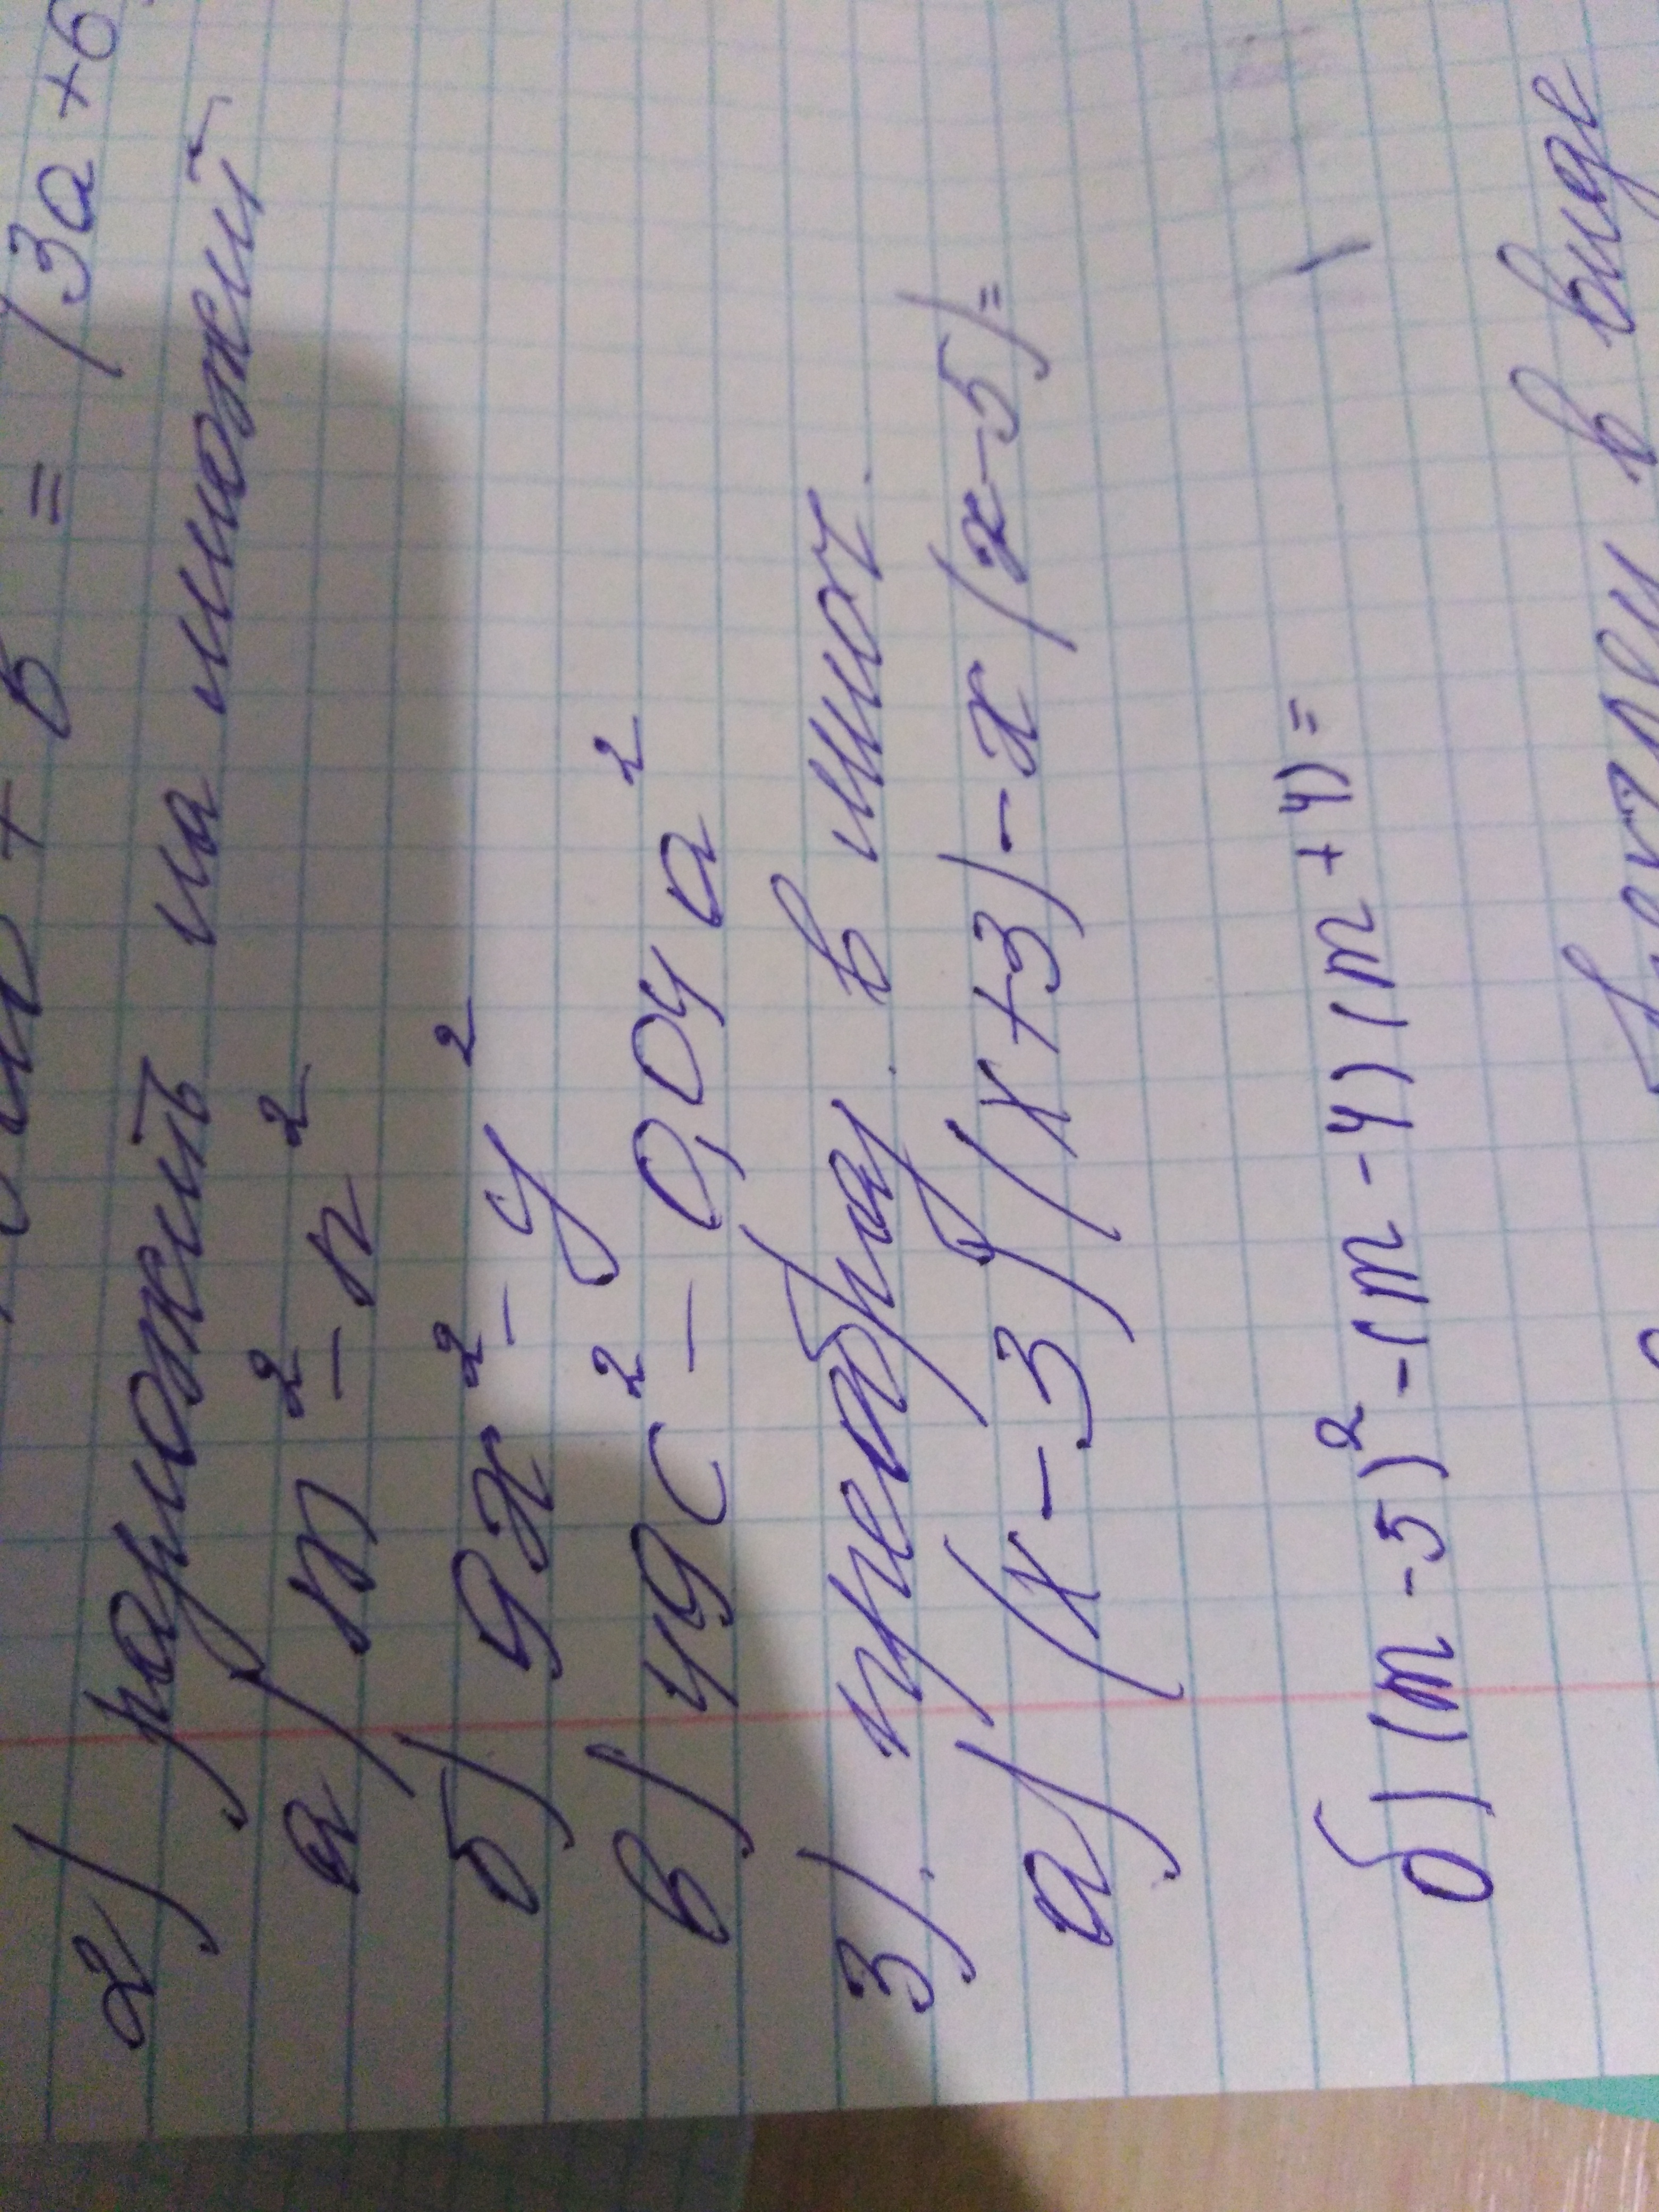 + b = (3a + b
2) разложить на множит
а) m² - n²
б) 9x² - y²
в) 49c² - 0,04a²
3). преобраз. в многч.
а) (x-3)(x+3) - x(x-5)=
б) (m-5)² - (m-4)(m+4)=
в виде